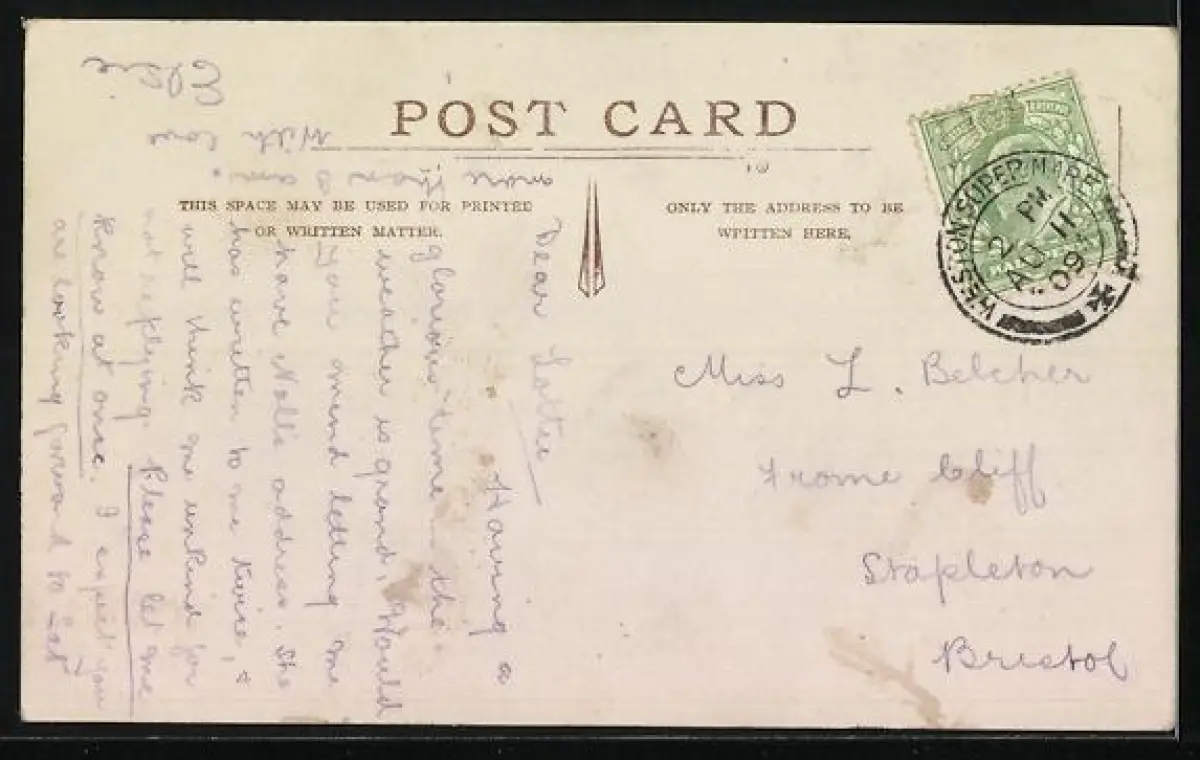 POST CARD
THIS SPACE MAY BE USED FOR PRINTED
OR WRITTEN MATTER.
ONLY THE ADDRESS TO BE
WRITTEN HERE.
WESTON-SUPER-MARE
2 PM
AU 11
09
Miss L. Belcher
Frome Cliff
Stapleton
Bristol
Dear Lottie
Having a
glorious time the
weather is grand. Would
you mind letting me
have Nell's address. She
has written to me twice, &
will think me unkind for
not replying. Please let me
know at once. I expect you
are looking forward to Sat
With love